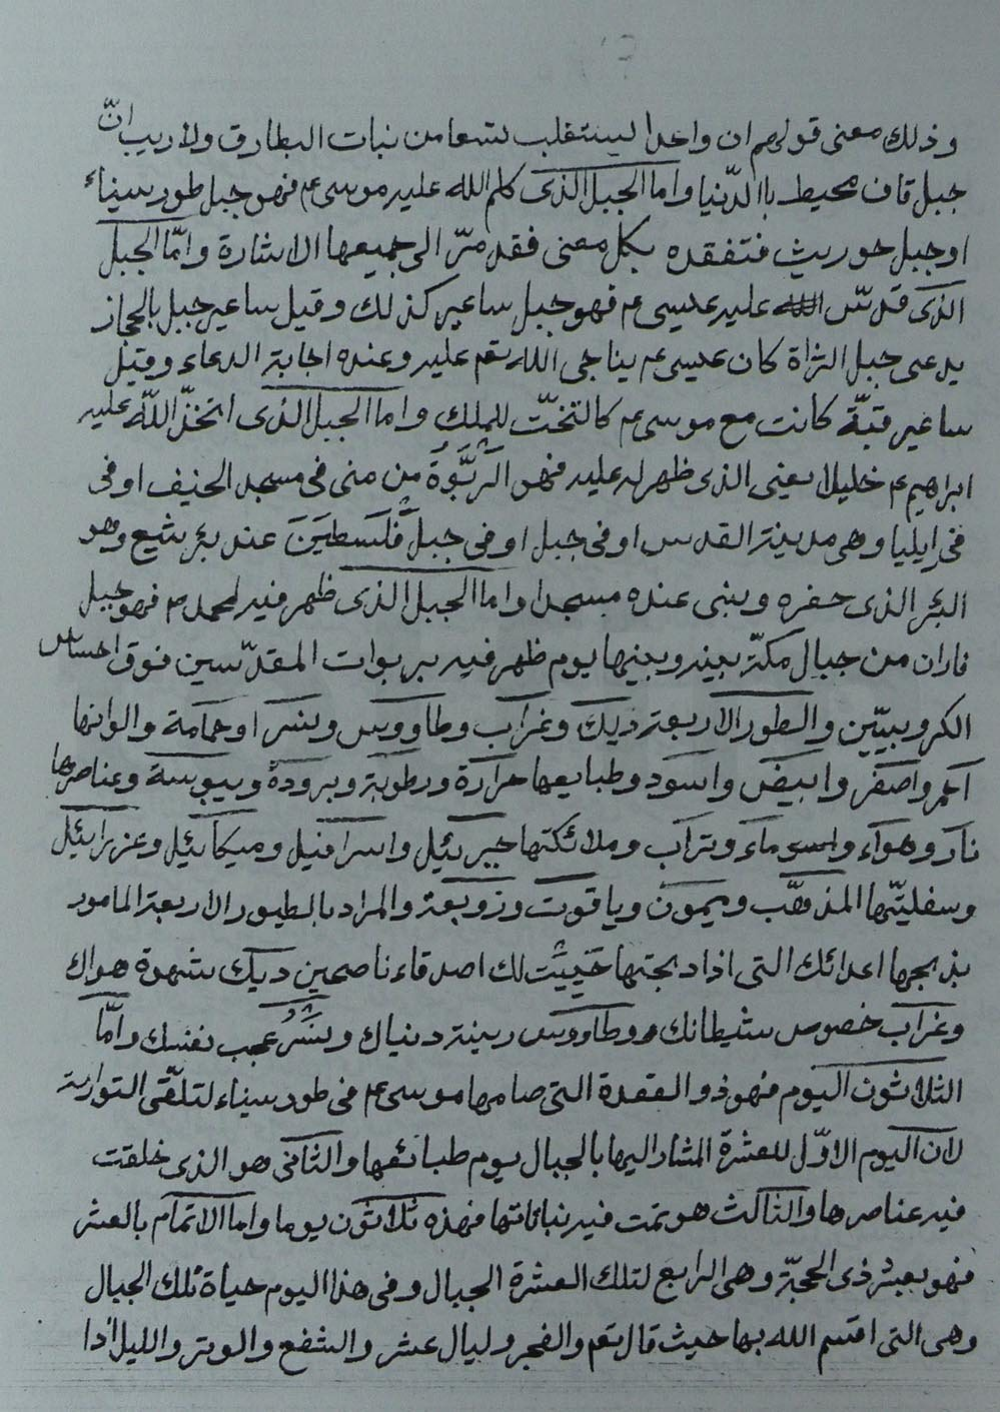 وذلك معنى قولهم ان واحدا ليستغلب تسعا من نبات البطارق ولا ريب انّ
جبل قاف محيط باالدّنيا واما الجبل الذى كلم الله عليه موسى عم فهو جبل طور سيناء
او جبل حوريث فتفقده بكل معنى فقد مرّ الى جميعها الاشارة وامّا الجبل
الذى قدّس الله عليه عيسى عم فهو جبل ساعير كذلك وقيل ساعير جبل بالحجاز
يدعى جبل الثراة كان عيسى عم يناجى الله تعم عليه وعنده اجابة الدعاء وقيل
ساعير قبّة كانت مع موسى عم كالتختّ للملك واما الجبل الذى اتخذ اللّه عليه
ابراهيم عم خليلا يعنى الذى ظهر له عليه فهو الرَّبْوَةُ من منى فى مسجد الخيف او فى
فى إيليا وهى مدينة القدس او فى جبل او فى جبل فلسطين عند بئر شيع وهو
البئر الذى حفره وبنى عنده مسجدا واما الجبل الذى ظهر فيه لمحمد م فهو جبل
فاران من جبال مكة بينه وبينها يوم ظهر فيه بربوات المقدّسين فوق احساس
الكروبيّين والطور الاربعة ديك وغراب وطاووس ونسر او حمامة والوانها
احمر واصفر وابيض واسود وطبايعها حرارة ورطوبة وبرودة ويبوسة وعناصرها
نار وهواء وماء وتراب وملائكتها جبرئيل واسرافيل وميكائيل وعزرائيل
وسفليتّها المذهّب وميمون وياقوت وزوبعة والمراد بالطيور الاربعة المامور
بذبحها اعدائك التى اذا ذبحتها حَيِيَت لك اصدقاء ناصحين ديك شهوة هواك
وغراب خصوص شيطانك وطاووس زينة دنياك ونَسْرُ عجب نفسك وامّا
الثلاثون اليوم فهو ذو القعدة التى صامها موسى عم فى طور سيناء لتلقّى التوارية
لان اليوم الاوّل للعشرة المشار اليها بالجبال يوم طبائعها والثانى هو الذى خلقت
فيه عناصرها والثالث هو تمت فيه نباتاتها فهذه ثلاثون يوما واما الاتمام بالعشر
فهو بعشر ذى الحجّة وهى الرابع لتلك العشرة الجبال وفى هذا اليوم حياة تلك الجبال
وهى التى اقسم الله بها حيث قال تعم والفجر وليال عشر والشفع والوتر والليل اذا